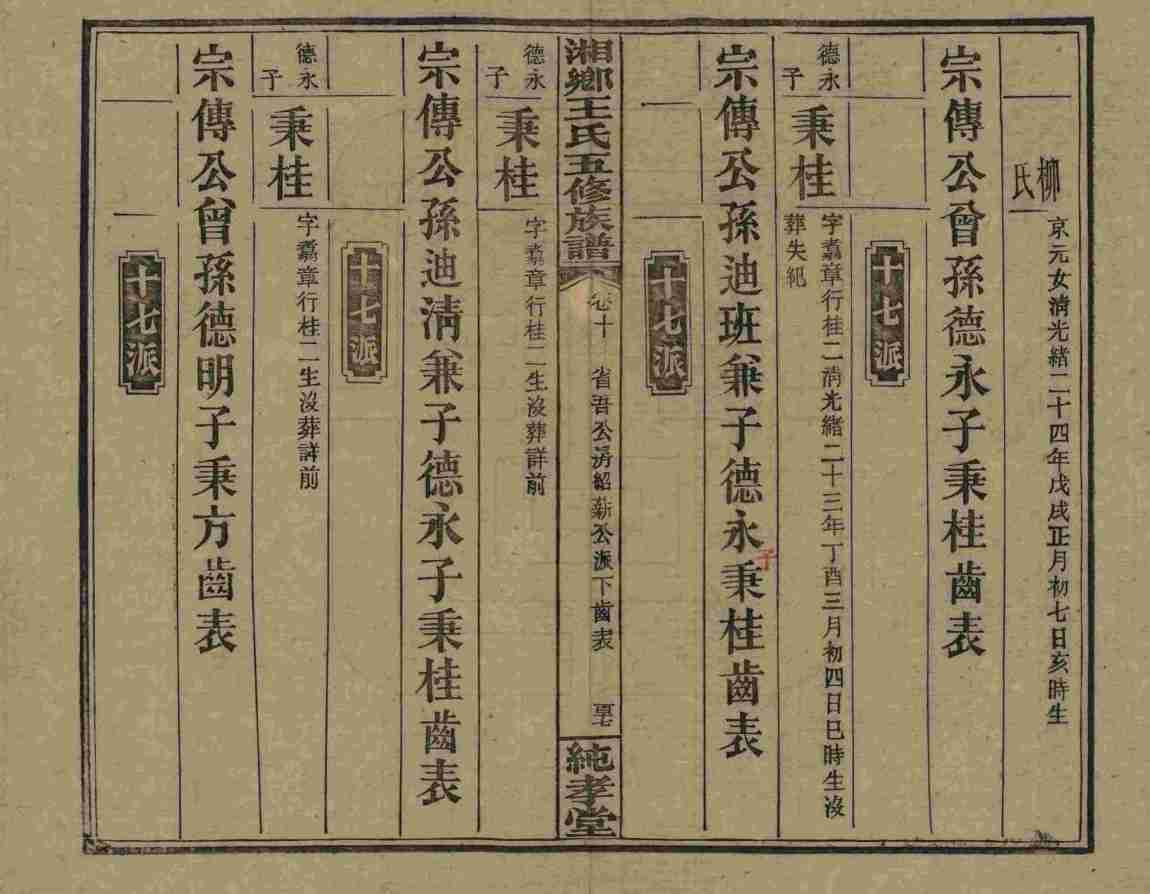 柳氏
京元女淸光緒二十四年戊戌正月初七日亥時生
宗傳公曾孫德永子秉桂齒表
十七派
德永子
秉桂
字翥章行桂二淸光緒二十三年丁酉三月初四日巳時生沒
葬失紀
宗傳公孫迪班兼子德永秉桂齒表
子
十七派
湘鄉王氏五修族譜
卷十
省吾公房紹新公派下齒表
純孝堂
德永子
秉桂
字翥章行桂二生沒葬詳前
宗傳公孫迪淸兼子德永子秉桂齒表
十七派
德永子
秉桂
字翥章行桂二生沒葬詳前
宗傳公曾孫德明子秉方齒表
十七派